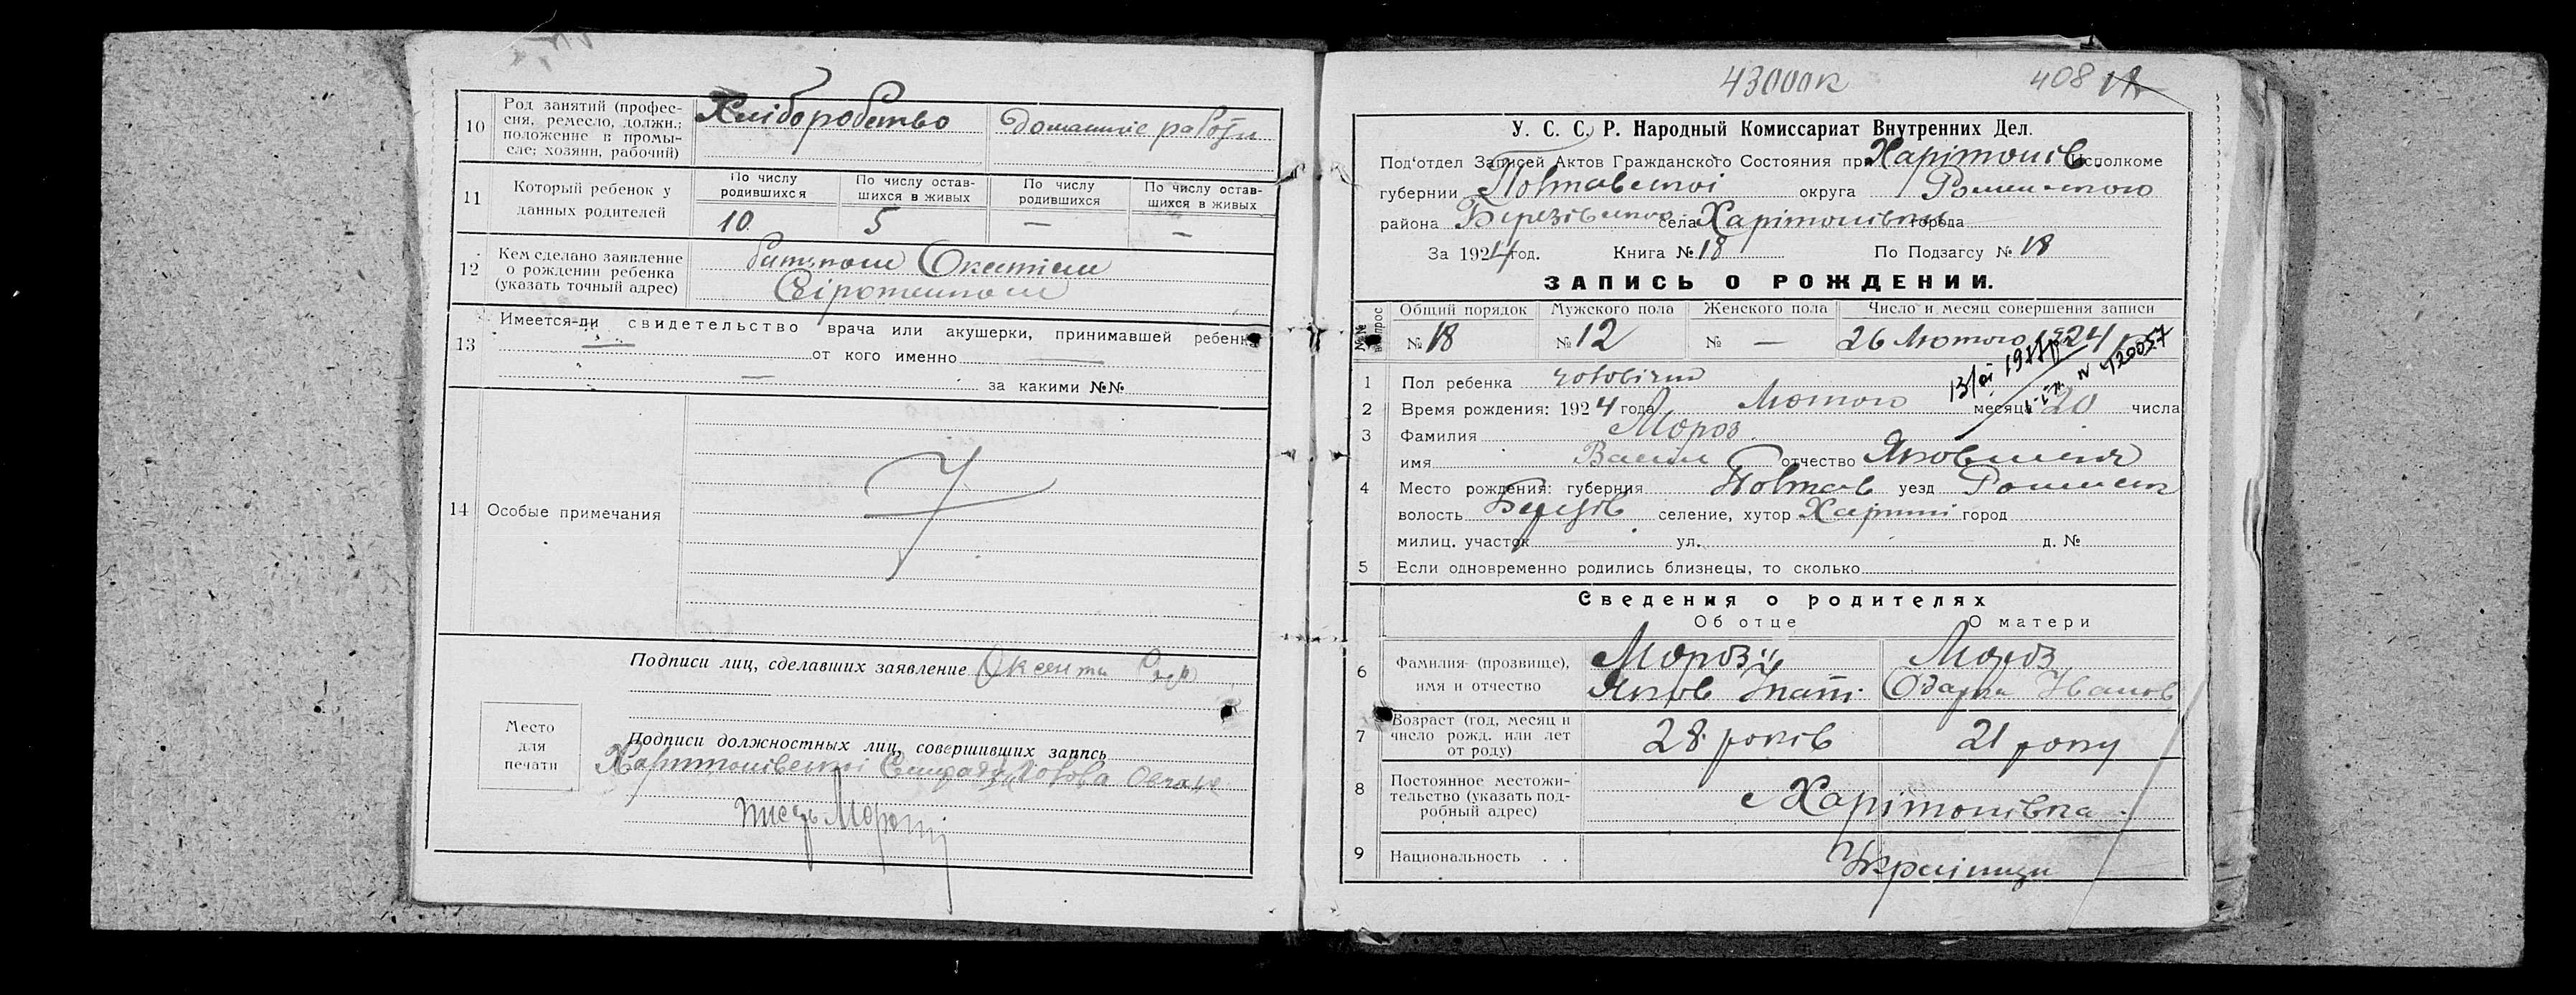 10 Род занятий (профес-
сия, ремесло, должн.;
положение в промы-
сле; хозяин, рабочий)
Хліборобство
Домашніе работи
11 Который ребенок у
данных родителей
По числу
родившихся
По числу остав-
шихся в живых
По числу
родившихся
По числу остав-
шихся в живых
10 5 — —
12 Кем сделано заявление
о рождении ребенка
(указать точный адрес)
батьком Оксентієм
13 Имеется-ли свидетельство врача или акушерки, принимавшей ребенка
от кого именно —
— за какими №№
14 Особые примечания
Подписи лиц, сделавших заявление Оксенти
Место
для
печати
Подписи должностных лиц, совершивших запись
Харитонівської Сільради Голова
408
У. С. С. Р. Народный Комиссариат Внутренних Дел.
Под'отдел Записей Актов Гражданского Состояния при Харітонів Исполкоме
губернии Полтавської округа Роменського
района Березівського села Харітонівки города
За 1924 год. Книга № 18 По Подзагсу № 18
ЗАПИСЬ О РОЖДЕНИИ.
№№ вопрос
Общий порядок Мужского пола Женского пола Число и месяц совершения записи
№ 18 № 12 № — 26 Лютого 1924 р
1 Пол ребенка чоловічий
2 Время рождения: 1924 года Лютого месяца 20 числа
3 Фамилия Мороз
имя Васил отчество Яковлевич
4 Место рождения: губерния Полтав уезд Роменськ
волость Березів селение, хутор Харитоні город
милиц. участок ул. д. №
5 Если одновременно родились близнецы, то сколько
Сведения о родителях
Об отце О матери
6 Фамилия (прозвище),
имя и отчество
Мороз
Яков Гнат.
Мороз
Одарка Иванов
7 Возраст (год, месяц и
число рожд. или лет
от роду)
28 років 21 року
8 Постоянное местожи-
тельство (указать под-
робный адрес)
с Харітонівка
9 Национальность . .
Українци